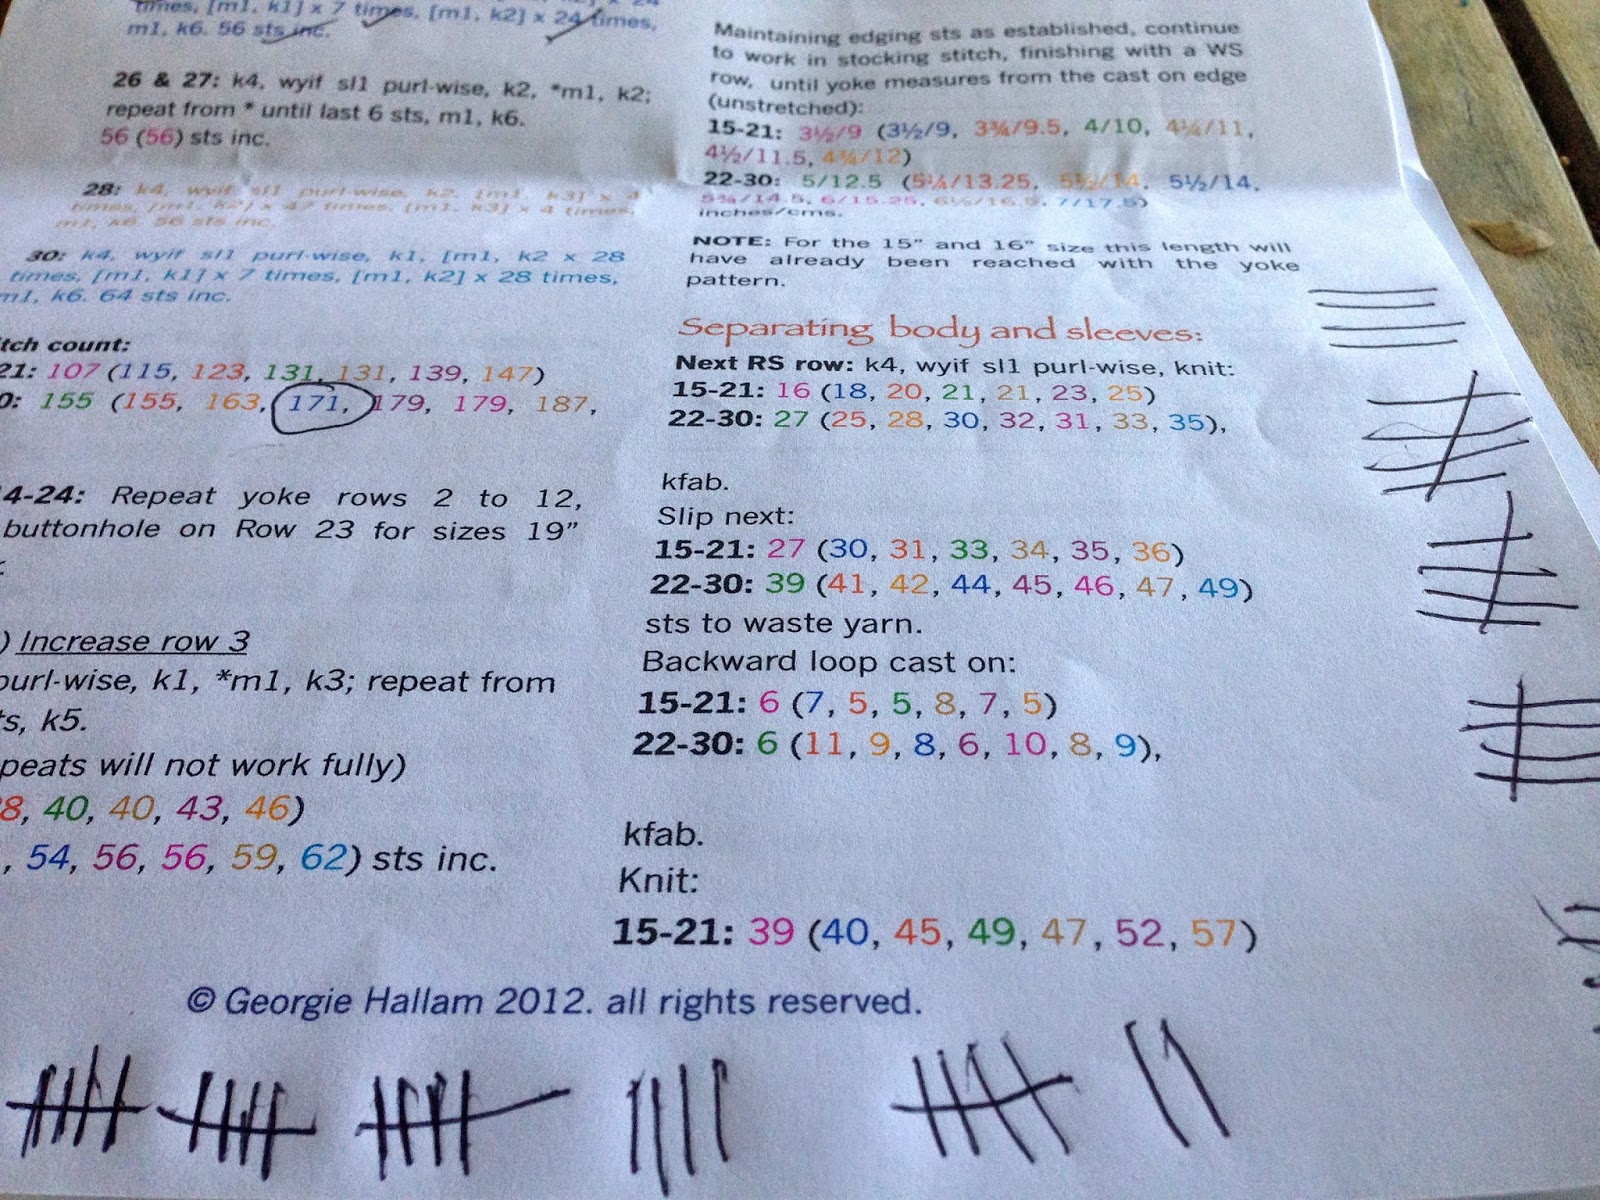 times, [m1, k1] x 7 times, [m1, k2] x 24 times,
m1, k6. 56 sts inc.
26 & 27: k4, wyif sl1 purl-wise, k2, *m1, k2;
repeat from * until last 6 sts, m1, k6.
56 (56) sts inc.
28: k4, wyif sl1 purl-wise, k2, [m1, k3] x 4
times, [m1, k2] x 47 times, [m1, k3] x 4 times,
m1, k6. 56 sts inc.
30: k4, wyif sl1 purl-wise, k1, [m1, k2 x 28
times, [m1, k1] x 7 times, [m1, k2] x 28 times,
m1, k6. 64 sts inc.
tch count:
21: 107 (115, 123, 131, 131, 139, 147)
0: 155 (155, 163, 171, 179, 179, 187,
4-24: Repeat yoke rows 2 to 12,
buttonhole on Row 23 for sizes 19”
) Increase row 3
purl-wise, k1, *m1, k3; repeat from
ts, k5.
peats will not work fully)
8, 40, 40, 43, 46)
, 54, 56, 56, 59, 62) sts inc.
Maintaining edging sts as established, continue
to work in stocking stitch, finishing with a WS
row, until yoke measures from the cast on edge
(unstretched):
15-21: 3½/9 (3½/9, 3¾/9.5, 4/10, 4¼/11,
4½/11.5, 4¾/12)
22-30: 5/12.5 (5¼/13.25, 5½/14, 5½/14,
5¾/14.5, 6/15.25, 6½/16.5, 7/17.5)
inches/cms.
NOTE: For the 15” and 16” size this length will
have already been reached with the yoke
pattern.
Separating body and sleeves:
Next RS row: k4, wyif sl1 purl-wise, knit:
15-21: 16 (18, 20, 21, 21, 23, 25)
22-30: 27 (25, 28, 30, 32, 31, 33, 35),
kfab.
Slip next:
15-21: 27 (30, 31, 33, 34, 35, 36)
22-30: 39 (41, 42, 44, 45, 46, 47, 49)
sts to waste yarn.
Backward loop cast on:
15-21: 6 (7, 5, 5, 8, 7, 5)
22-30: 6 (11, 9, 8, 6, 10, 8, 9),
kfab.
Knit:
15-21: 39 (40, 45, 49, 47, 52, 57)
© Georgie Hallam 2012. all rights reserved.